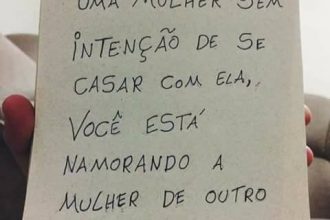 UMA MULHER SEM
INTENÇÃO DE SE
CASAR COM ELA,
VOCÊ ESTÁ
NAMORANDO A
MULHER DE OUTRO